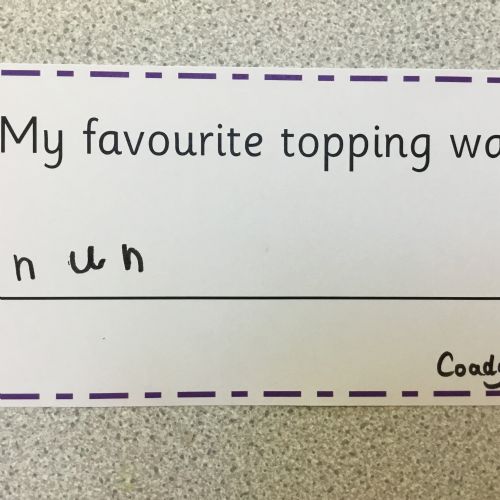 My favourite topping wa
n un
Coad